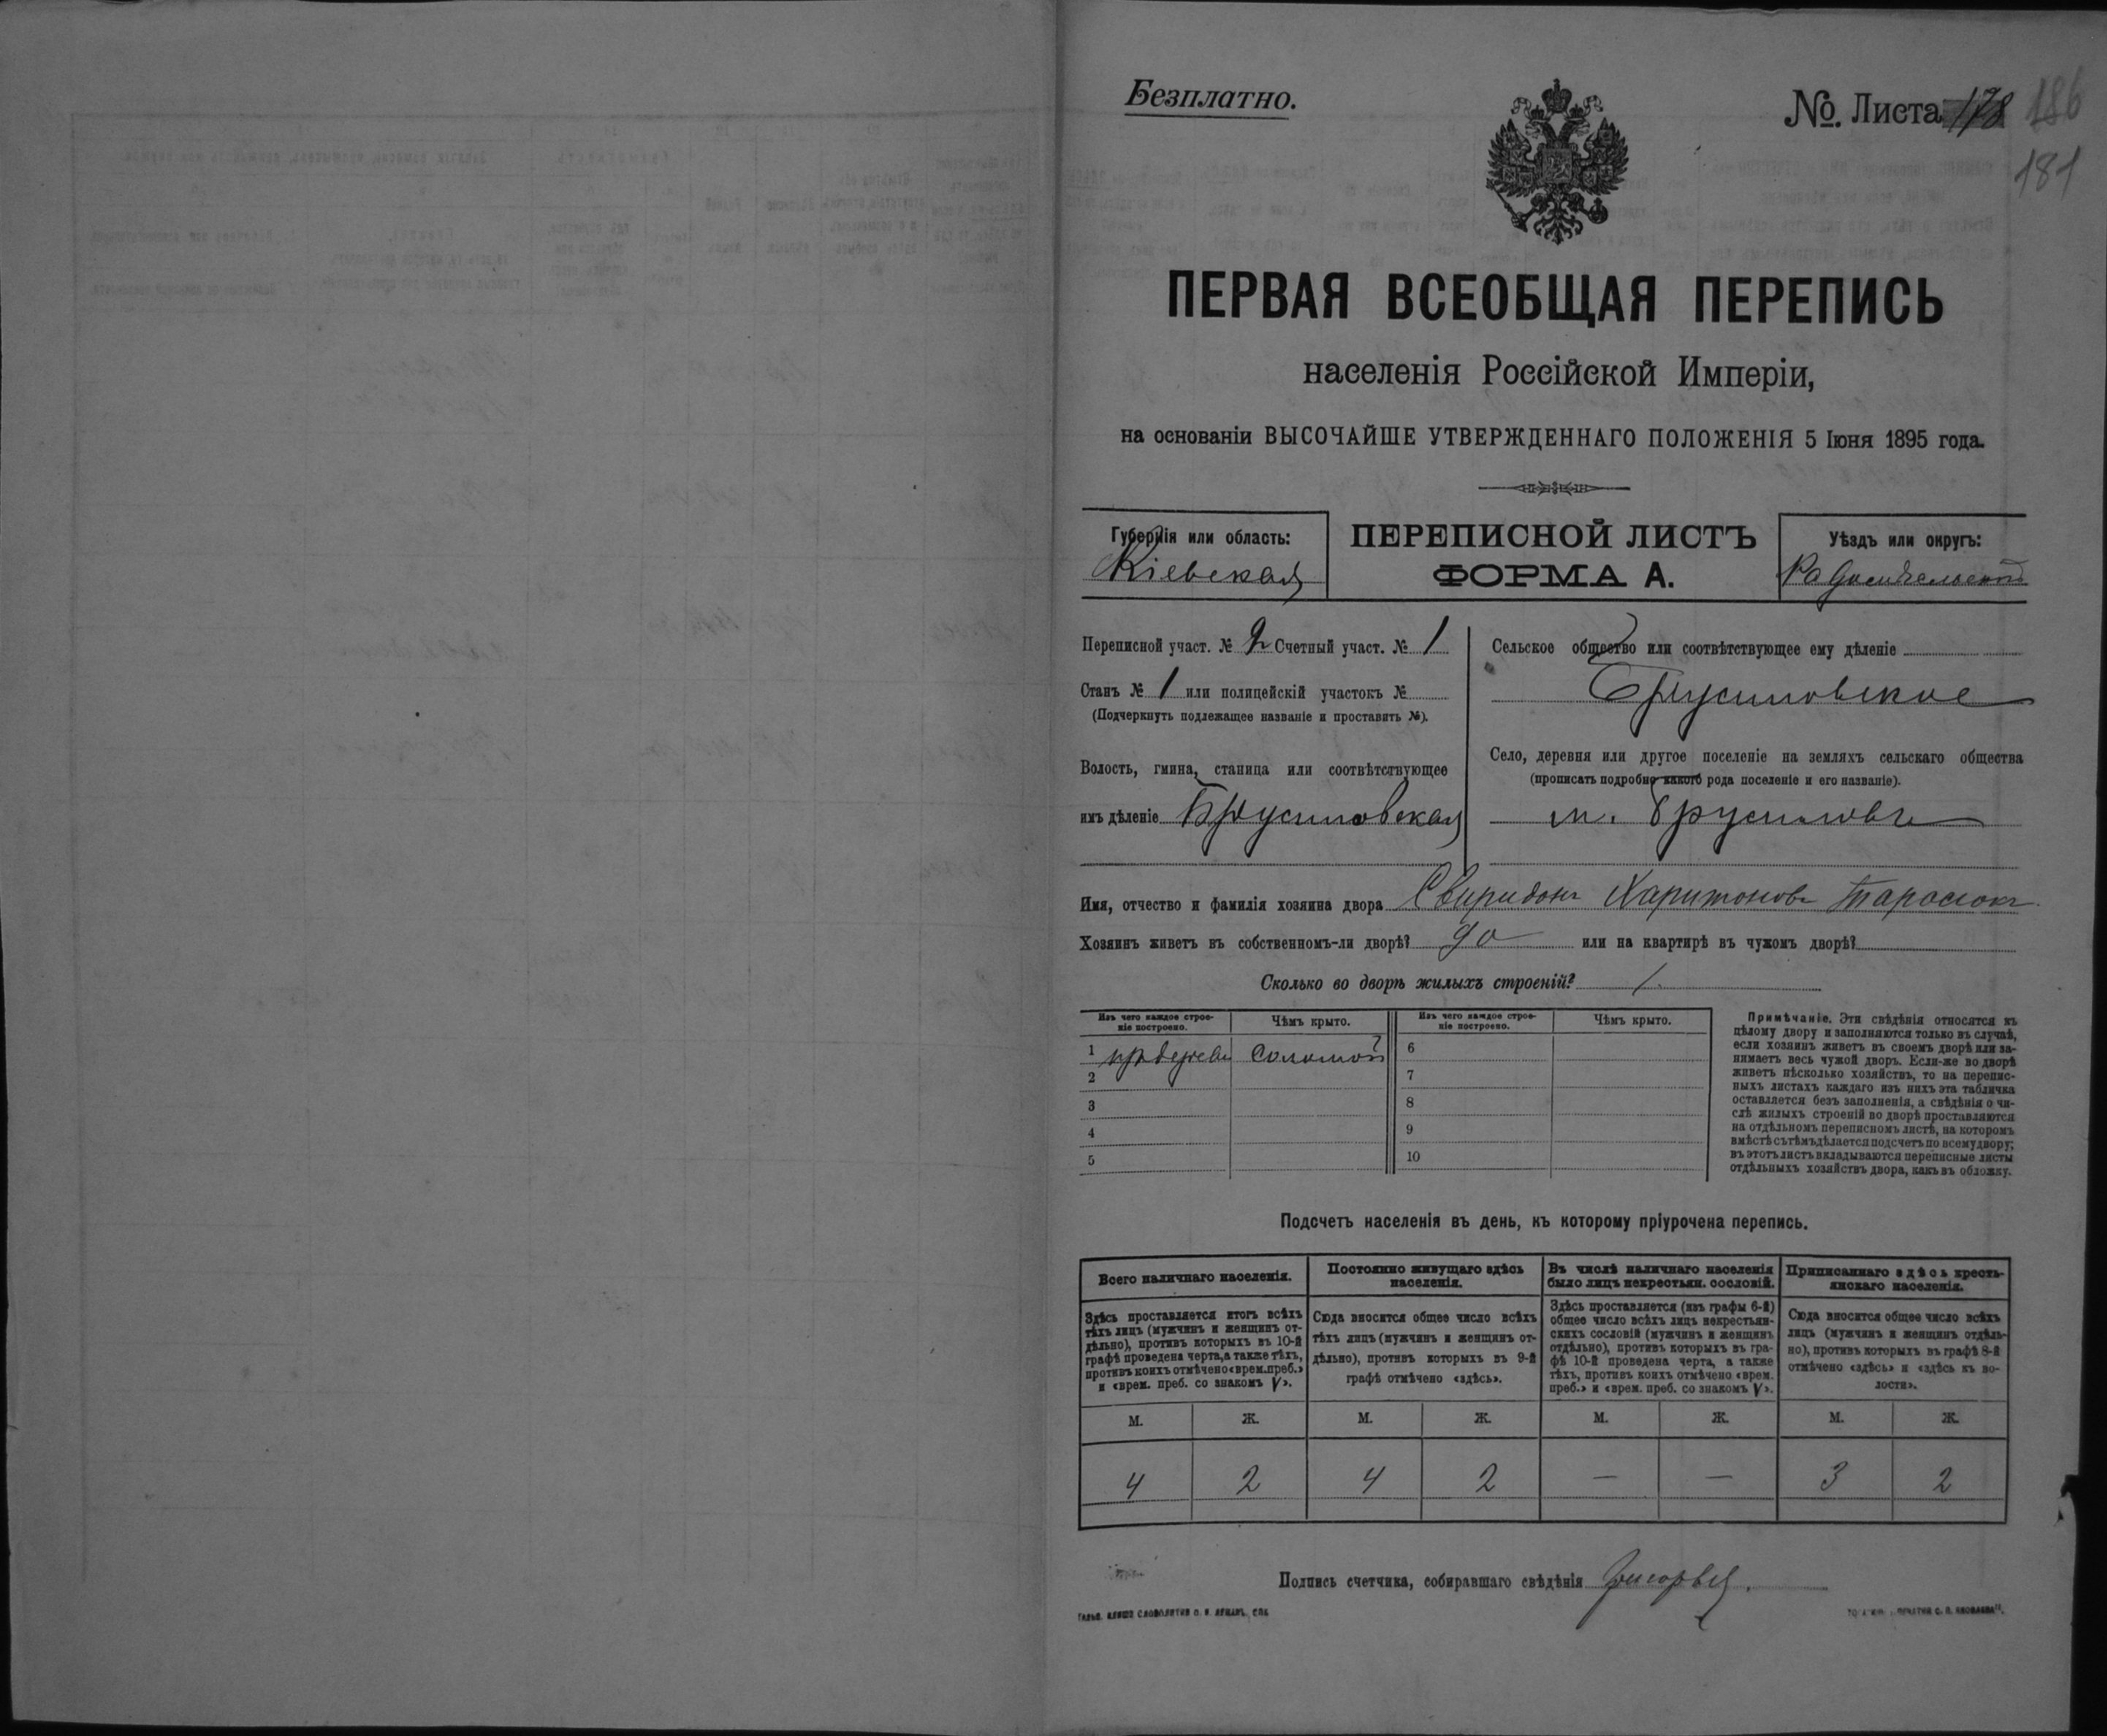 Безплатно.
№. Листа 178 186
181
ПЕРВАЯ ВСЕОБЩАЯ ПЕРЕПИСЬ
населенія Россійской Имперіи,
на основаніи ВЫСОЧАЙШЕ УТВЕРЖДЕННАГО ПОЛОЖЕНІЯ 5 Іюня 1895 года.
Губернія или область:
Кіевская
ПЕРЕПИСНОЙ ЛИСТЪ
ФОРМА А.
Уѣздъ или округъ:
Радомысльскій
Переписной участ. № 2 Счетный участ. № 1
Станъ № 1 или полицейскій участокъ №
(Подчеркнуть подлежащее названіе и проставить №).
Волость, гмина, станица или соотвѣтствующее
имъ дѣленіе Брусиловская
Сельское общество или соотвѣтствующее ему дѣленіе
Брусиловское
Село, деревня или другое поселеніе на земляхъ сельскаго общества
(прописать подробно какого рода поселеніе и его названіе).
м. Брусиловъ
Имя, отчество и фамилія хозяина двора Свиридонъ Харитоновъ Тарасюкъ
Хозяинъ живетъ въ собственномъ-ли дворѣ? да или на квартирѣ въ чужомъ дворѣ?
Сколько во дворѣ жилыхъ строеній? 1.
Изъ чего каждое строе-
ніе построено.
Чѣмъ крыто.
Изъ чего каждое строе-
ніе построено.
Чѣмъ крыто.
1 соломой 6
2 7
3 8
4 9
5 10
Примѣчаніе. Эти свѣдѣнія относятся къ
цѣлому двору и заполняются только въ случаѣ,
если хозяинъ живетъ въ своемъ дворѣ или за-
нимаетъ весь чужой дворъ. Если-же во дворѣ
живетъ нѣсколько хозяйствъ, то на перепис-
ныхъ листахъ каждаго изъ нихъ эта табличка
оставляется безъ заполненія, а свѣдѣнія о чи-
слѣ жилыхъ строеній во дворѣ проставляются
на отдѣльномъ переписномъ листѣ, на которомъ
вмѣстѣ съ тѣмъ дѣлается подсчетъ по всему двору;
въ этотъ листъ вкладываются переписные листы
отдѣльныхъ хозяйствъ двора, какъ въ обложку.
Подсчетъ населенія въ день, къ которому пріурочена перепись.
Всего наличнаго населенія.
Здѣсь проставляется итогъ всѣхъ
тѣхъ лицъ (мужчинъ и женщинъ от-
дѣльно), противъ которыхъ въ 10-й
графѣ проведена черта, а также тѣхъ,
противъ коихъ отмѣчено «врем. преб.»
и «врем. преб. со знакомъ V».
Постоянно живущаго здѣсь
населенія.
Сюда вносится общее число всѣхъ
тѣхъ лицъ (мужчинъ и женщинъ от-
дѣльно), противъ которыхъ въ 9-й
графѣ отмѣчено «здѣсь».
Въ числѣ наличнаго населенія
было лицъ некрестьян. сословій.
Здѣсь проставляется (изъ графы 6-й)
общее число всѣхъ лицъ некрестьян-
скихъ сословій (мужчинъ и женщинъ
отдѣльно), противъ которыхъ въ гра-
фѣ 10-й проведена черта, а также
тѣхъ, противъ коихъ отмѣчено «врем.
преб.» и «врем. преб. со знакомъ V».
Приписаннаго здѣсь кресть-
янскаго населенія.
Сюда вносится общее число всѣхъ
лицъ (мужчинъ и женщинъ отдѣль-
но), противъ которыхъ въ графѣ 8-й
отмѣчено «здѣсь» и «здѣсь къ во-
лости».
М. Ж. М. Ж. М. Ж. М. Ж.
4 2 4 2 — — 3 2
Подпись счетчика, собиравшаго свѣдѣнія